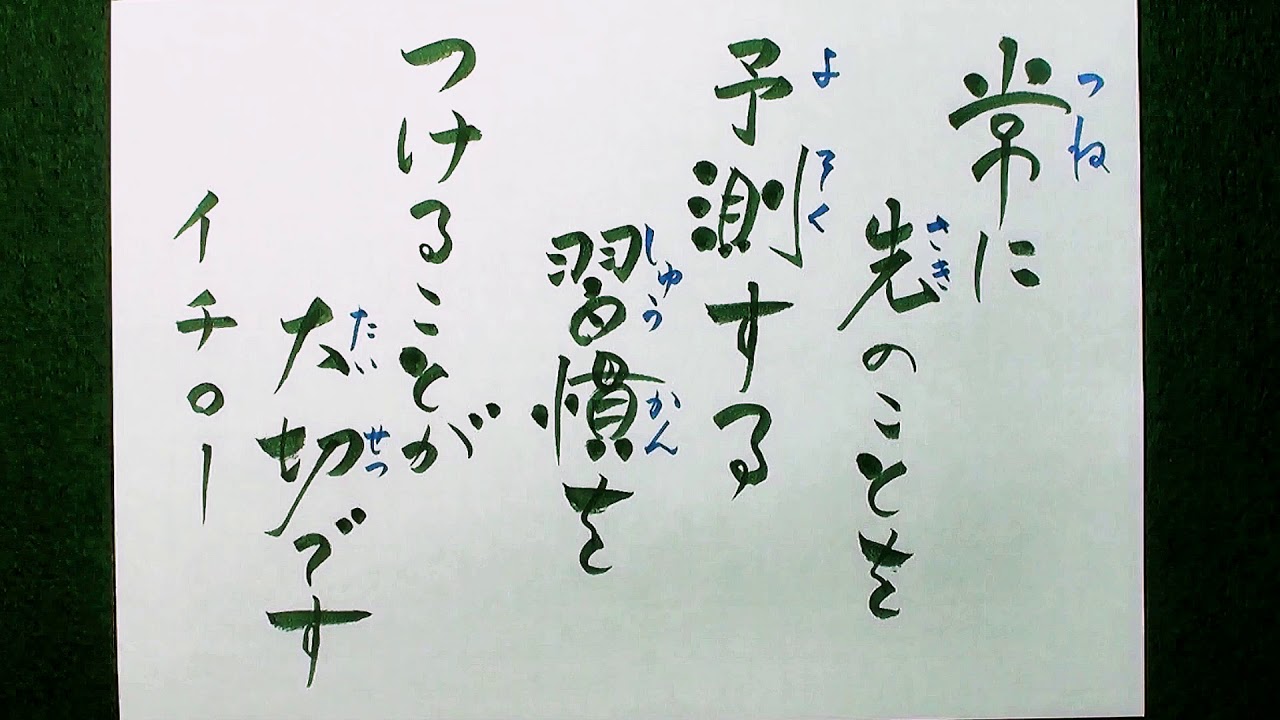 常に
つね
先のことを
さき
予測する
よそく
習慣を
しゅうかん
つけることが
大切です
たいせつ
イチロー